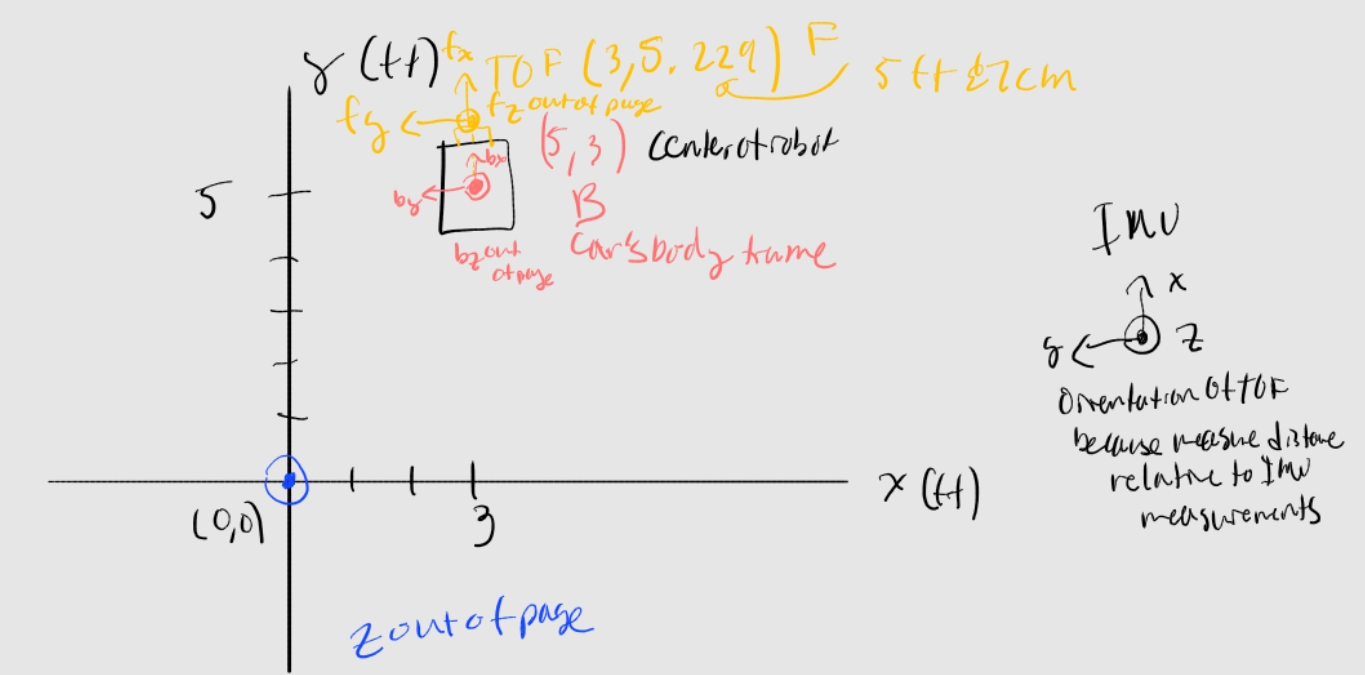 y (ft)
fx
TOF (3,5.229) F
5 ft & 7 cm
fy
fz out of page
(5,3) center of robot
bx
5
by
B
bz out
of page
Car's body frame
IMU
x
y
z
Orientation of TOF
because measure distance
relative to IMU
measurements
x (ft)
(0,0)
3
z out of page